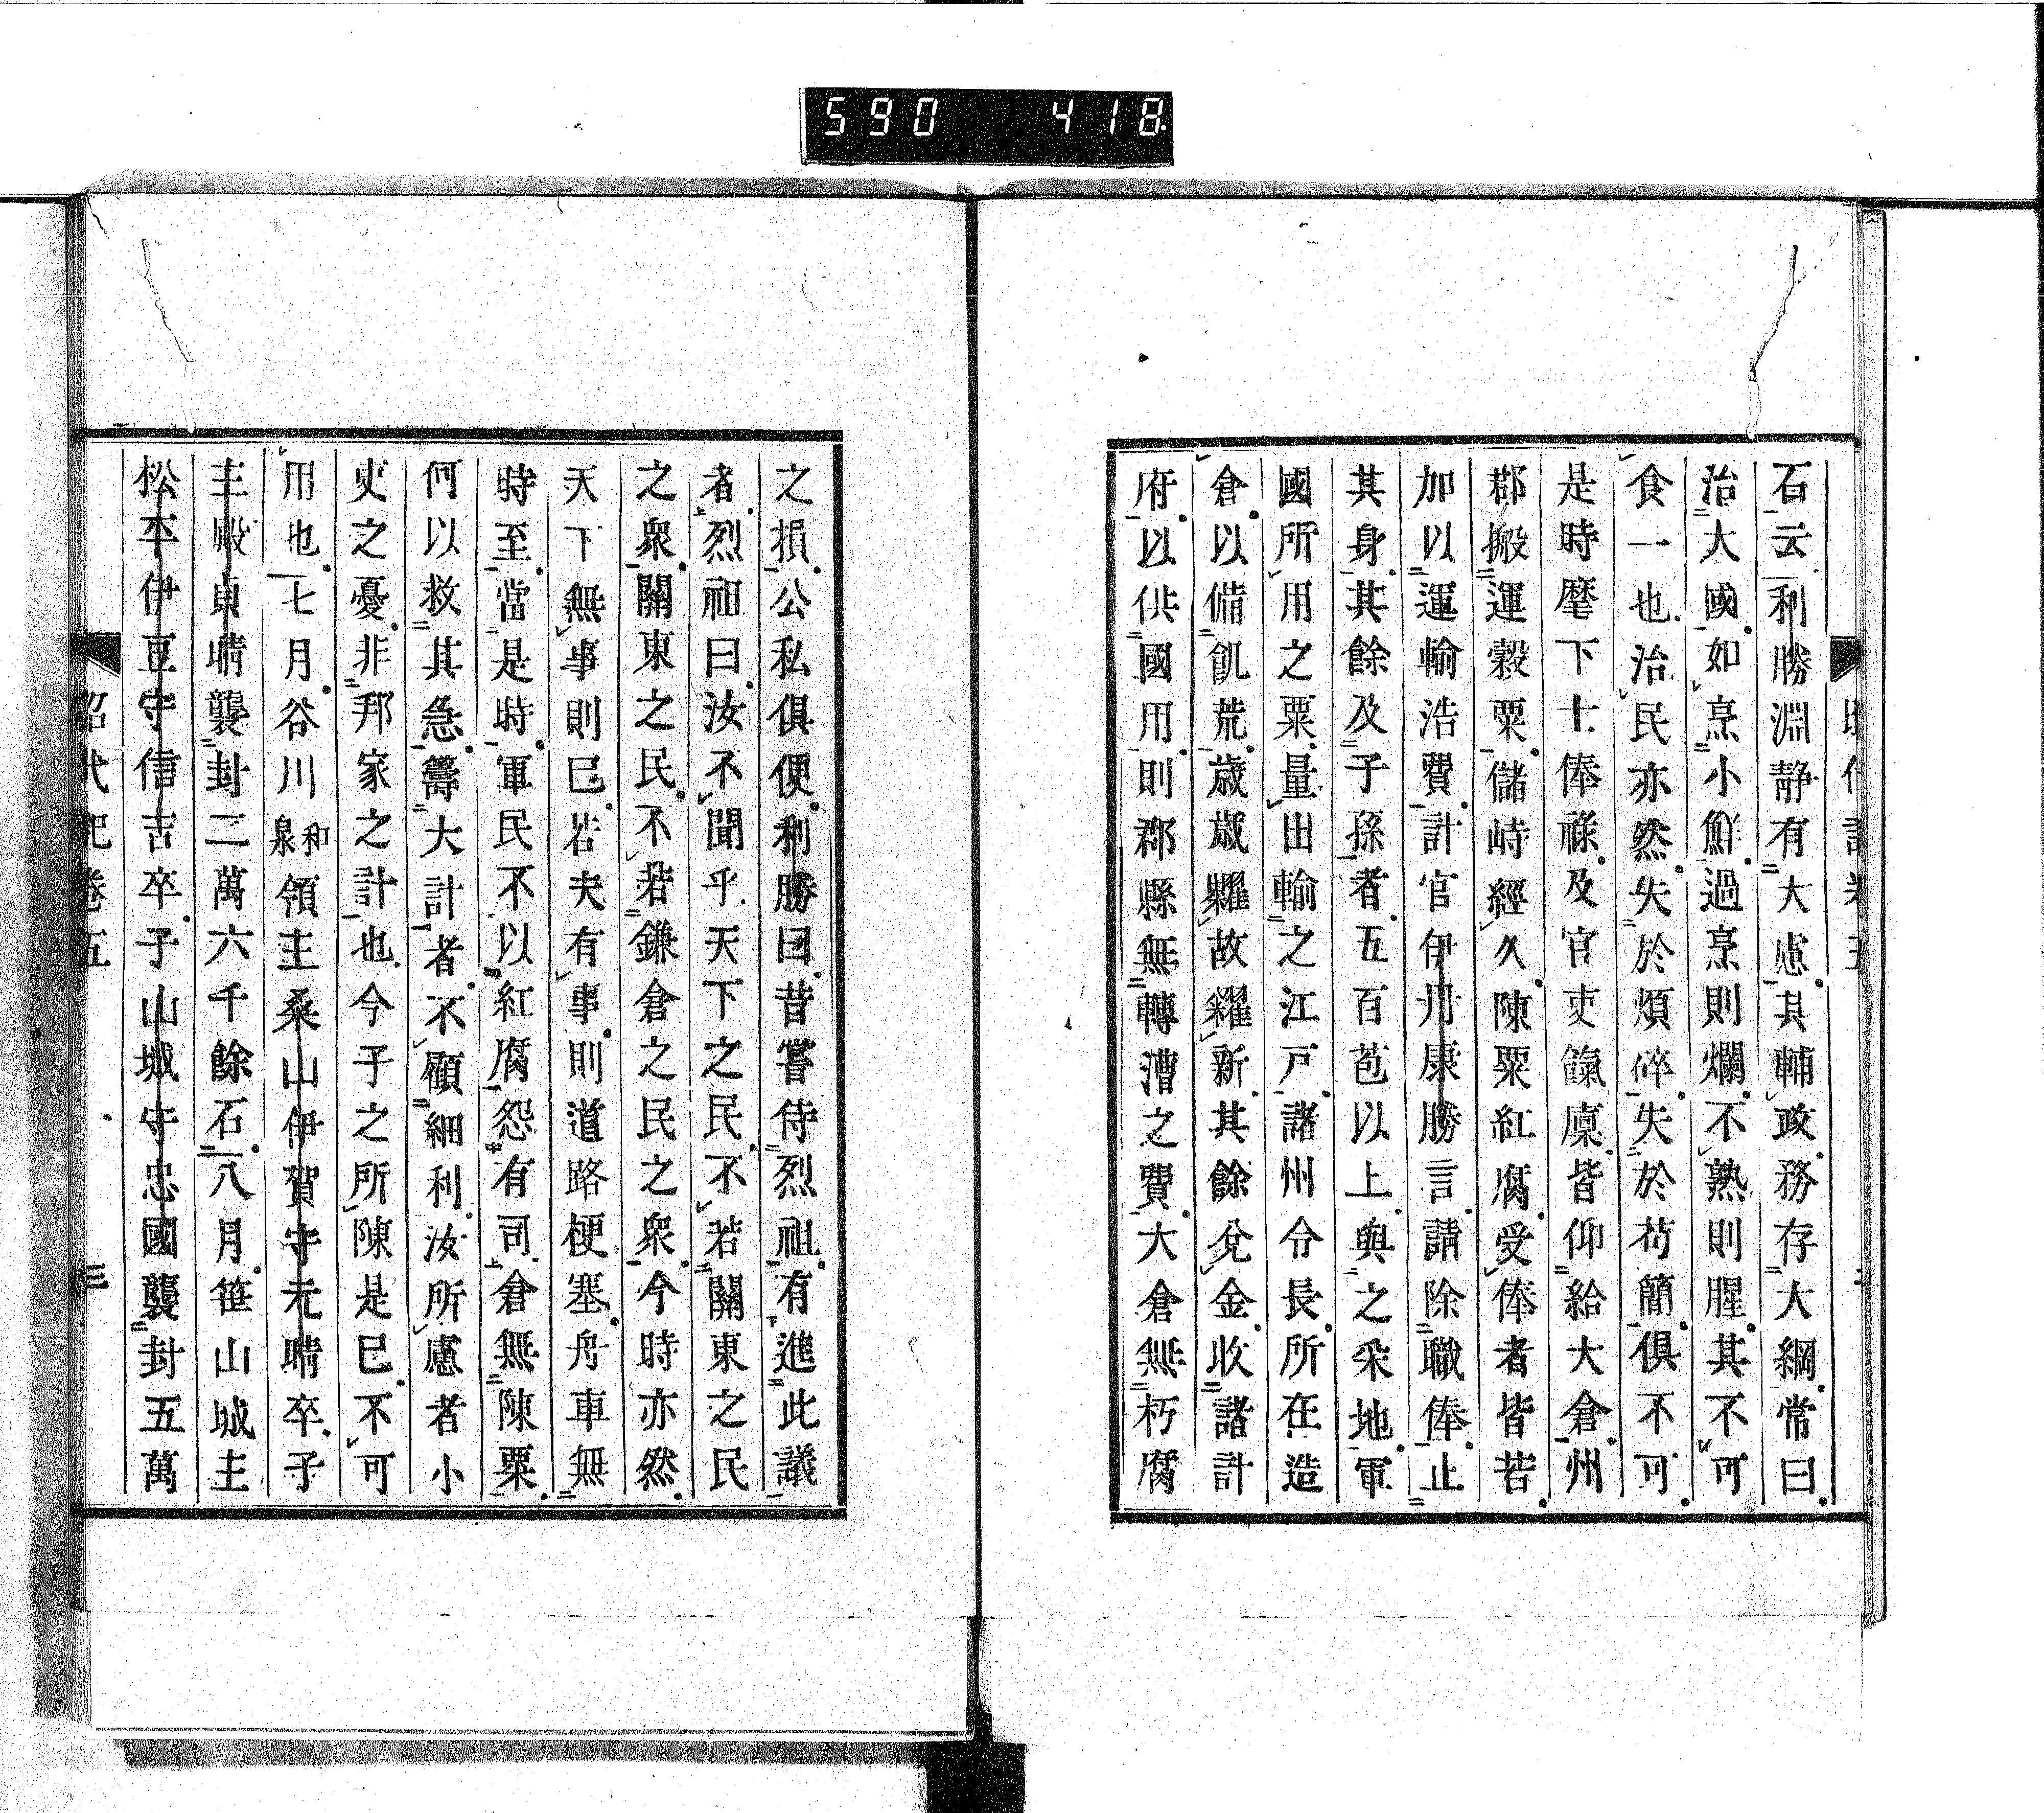 590 418
石云利勝淵靜有大慮其輔政務存大綱常曰
治大國如烹小鮮過烹則爛不熟則腥其不可
食一也治民亦然失於煩碎失於苟簡俱不可
是時麾下士俸祿及官吏餼廩皆仰給大倉州
郡搬運穀粟儲峙經久陳粟紅腐受俸者皆苦
加以運輸浩費計官伊丹康勝言請除職俸止
其身其餘及子孫者五百苞以上與之采地軍
國所用之粟量出輸之江戸諸州令長所在造
倉以備飢荒歲歲糶故糴新其餘兌金收諸計
府以供國用則郡縣無轉漕之費大倉無朽腐
之損公私俱便利勝曰昔嘗侍烈祖有進此議
者烈祖曰汝不聞乎天下之民不若關東之民
之衆關東之民不若鎌倉之民之衆今時亦然
天下無事則已若夫有事則道路梗塞舟車無
時至當是時軍民不以紅腐怨有司倉無陳粟
何以救其急籌大計者不顧細利汝所慮者小
吏之憂非邦家之計也今子之所陳是已不可
用也七月谷川和泉領主桑山伊賀守元晴卒子
主殿東晴襲封二萬六千餘石八月笹山城主
松平伊豆守信吉卒子山城守忠國襲封五萬
昭代記卷五 三